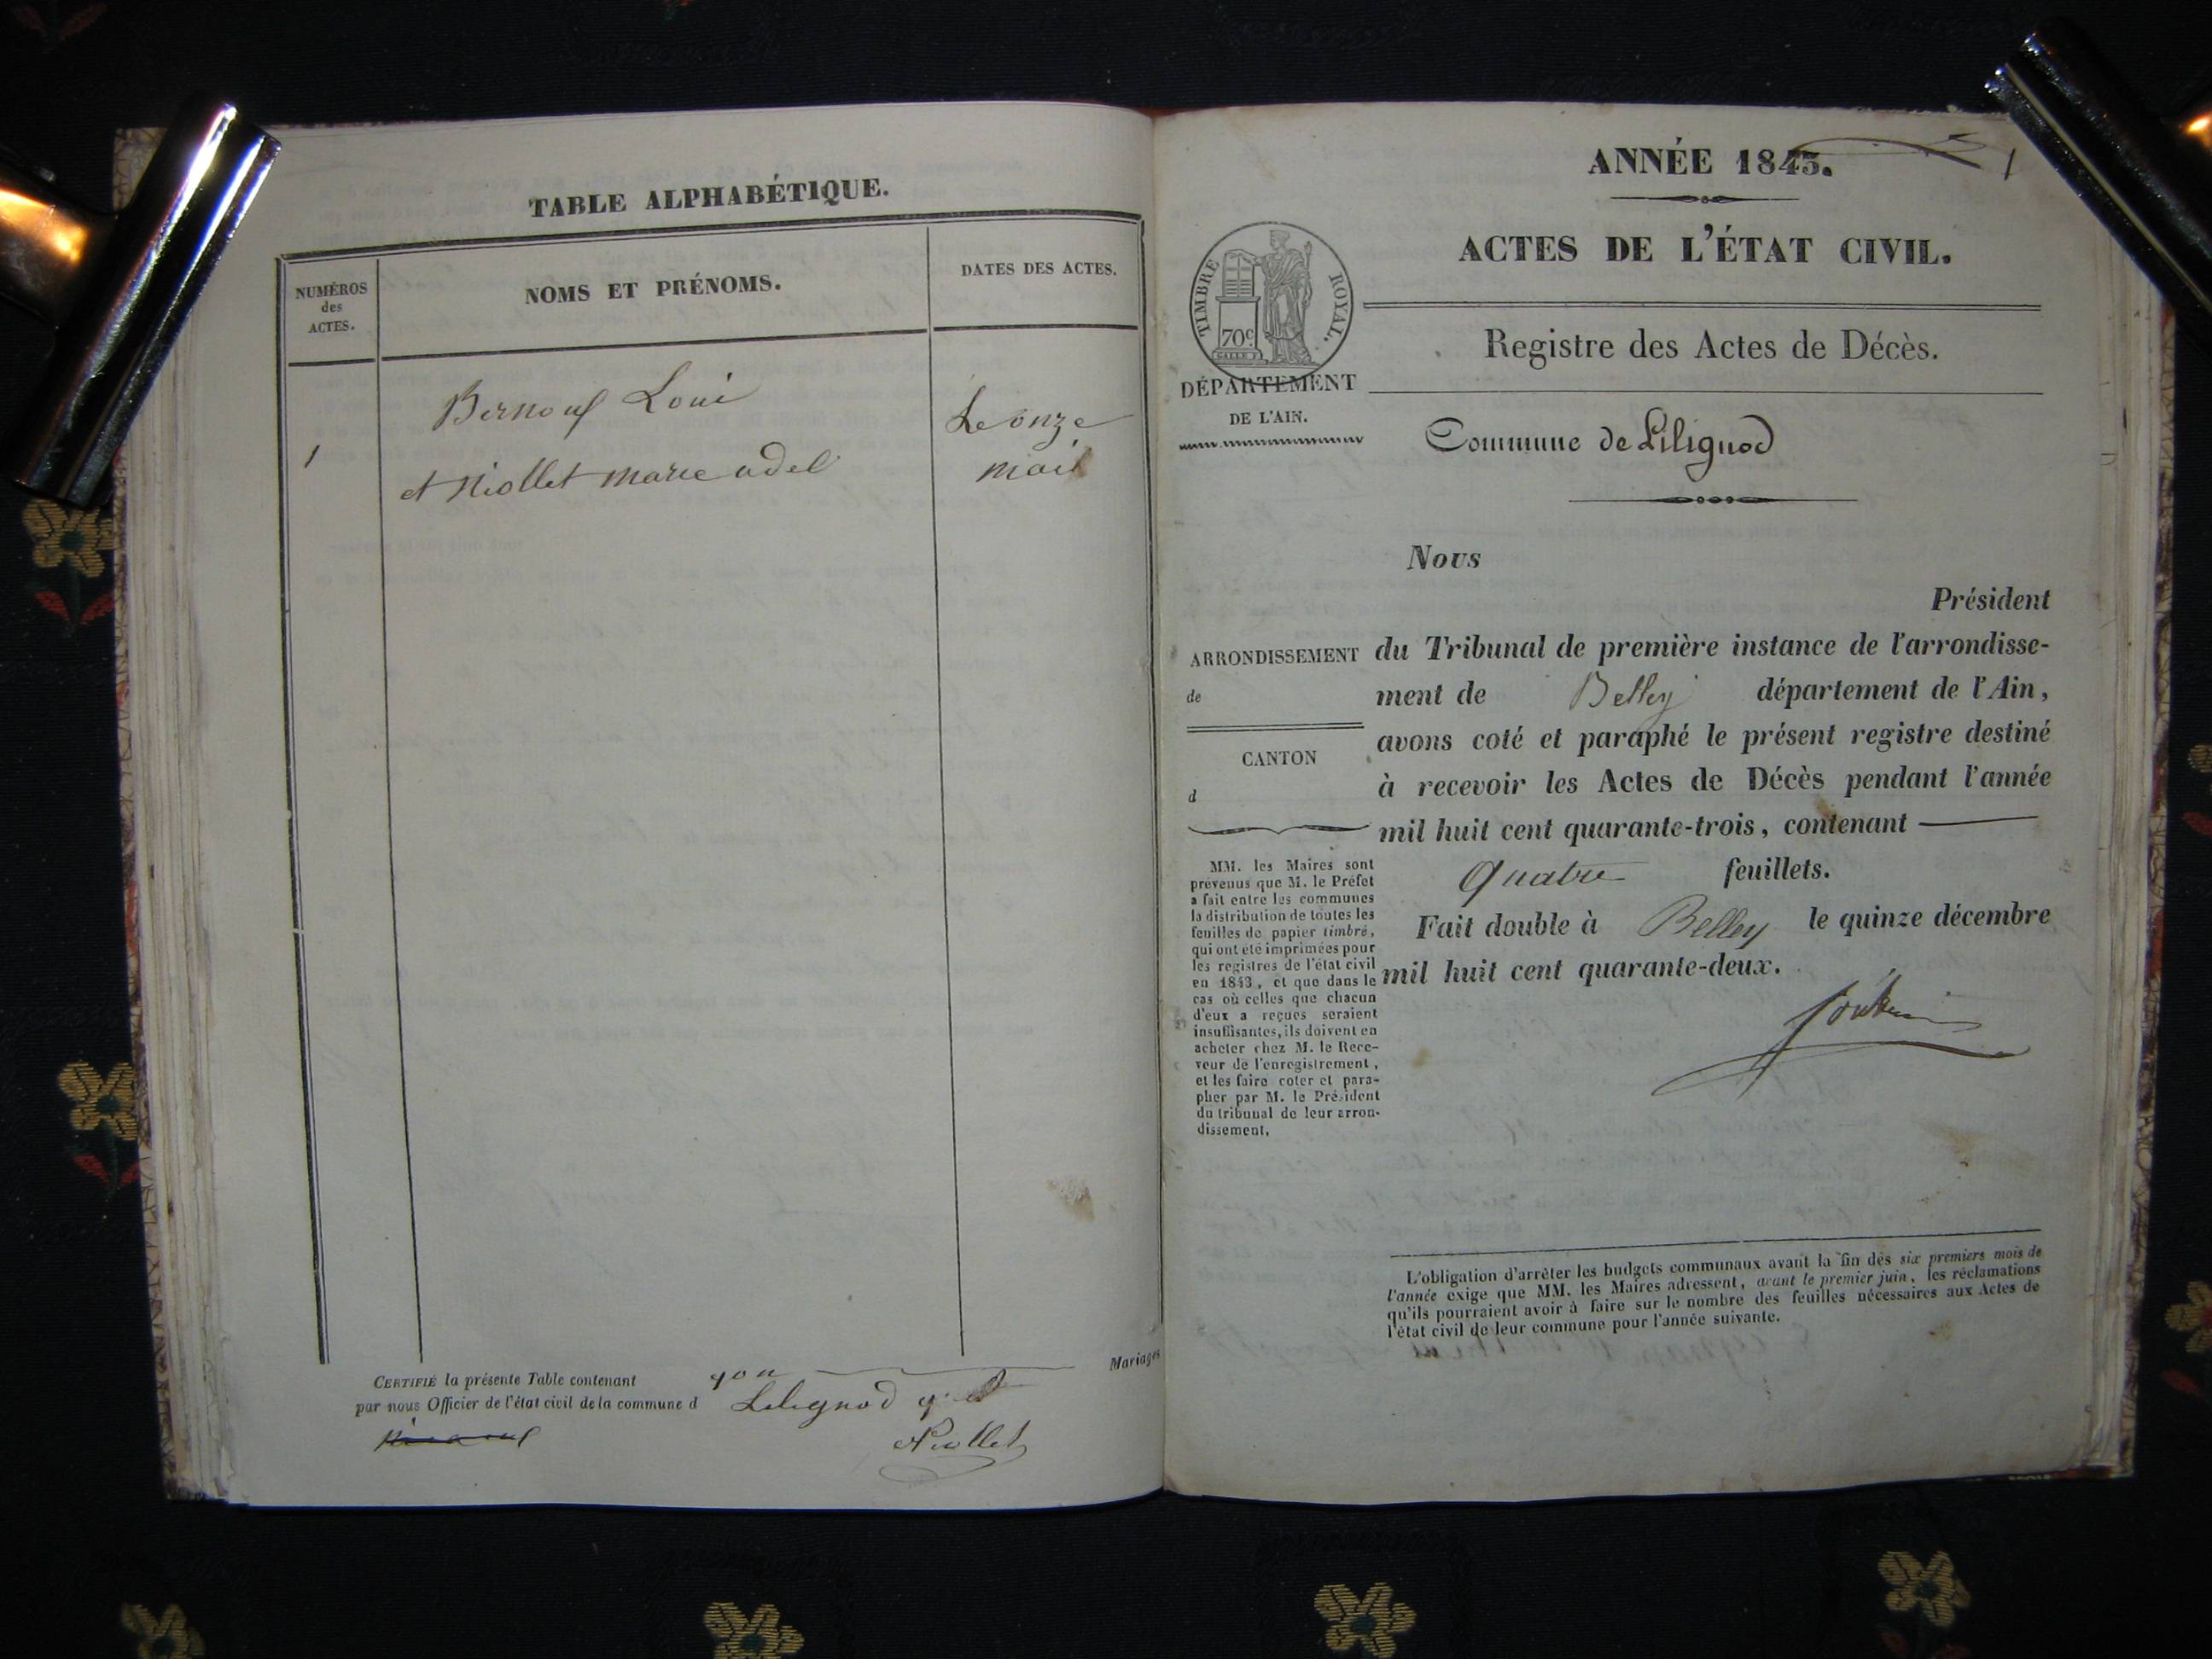 TABLE ALPHABÉTIQUE.
NUMÉROS
des
ACTES.
NOMS ET PRÉNOMS.
DATES DES ACTES.
Bernouf Loui
Le onze
1
et Niollet marie adel
mail
CERTIFIÉ la présente Table contenant
Mariages
par nous Officier de l'état civil de la commune d Lilignod
Niollet
ANNÉE 1843.
1
ACTES DE L'ÉTAT CIVIL.
TIMBRE ROYAL.
70c
Registre des Actes de Décès.
DÉPARTEMENT
DE L'AIN.
Commune de Lilignod
Nous
Président
ARRONDISSEMENT
de
CANTON
d
du Tribunal de première instance de l'arrondisse-
ment de Belley département de l'Ain,
avons coté et paraphé le présent registre destiné
à recevoir les Actes de Décès pendant l'année
mil huit cent quarante-trois, contenant
quatre feuillets.
Fait double à Belley le quinze décembre
mil huit cent quarante-deux.
MM. les Maires sont
prévenus que M. le Préfet
a fait entre les communes
la distribution de toutes les
feuilles de papier timbré,
qui ont été imprimées pour
les registres de l'état civil
en 1843, et que dans le
cas où celles que chacun
d'eux a reçues seraient
insuffisantes, ils doivent en
acheter chez M. le Rece-
veur de l'enregistrement,
et les faire coter et para-
pher par M. le Président
du tribunal de leur arron-
dissement.
L'obligation d'arrêter les budgets communaux avant la fin des six premiers mois de
l'année exige que MM. les Maires adressent, avant le premier juin, les réclamations
qu'ils pourraient avoir à faire sur le nombre des feuilles nécessaires aux Actes de
l'état civil de leur commune pour l'année suivante.